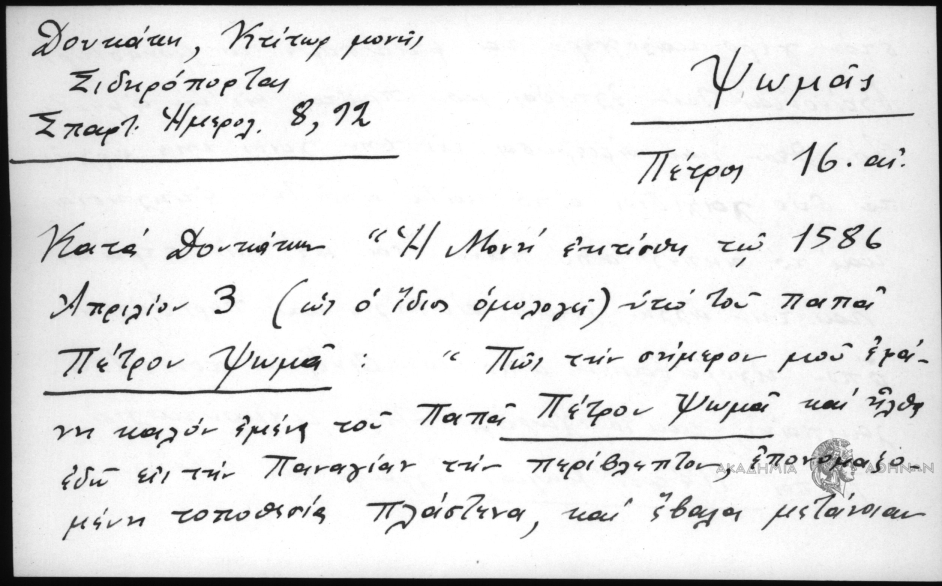 Δουκάκη, Κτίτωρ μονῆς
Σιδηρόπορτας
Σπαρτ. Ἡμερολ. 8, 92
Ψωμᾶς
Πέτρος 16. αἰ.
Κατά Δουκάκην "Ἡ Μονή ἐκτίσθη τῷ 1586
Ἀπριλίου 3 (ὡς ὁ ἴδιος ὁμολογεῖ) ὑπό τοῦ παπᾶ
Πέτρου Ψωμᾶ : " Πῶς τήν σήμερον μοῦ ἐφά-
νη καλόν ἐμένα τοῦ Παπᾶ Πέτρου Ψωμᾶ καί ἦλθα
ἐδῶ εἰς τήν Παναγίαν τήν περίβλεπτον, ἐπονομαζο-
μένη τοποθεσία Πλάστενα, καί ἔβαλα μετάνοιαν
ΑΚΑΔΗΜΙΑ ΑΘΗΝΩΝ